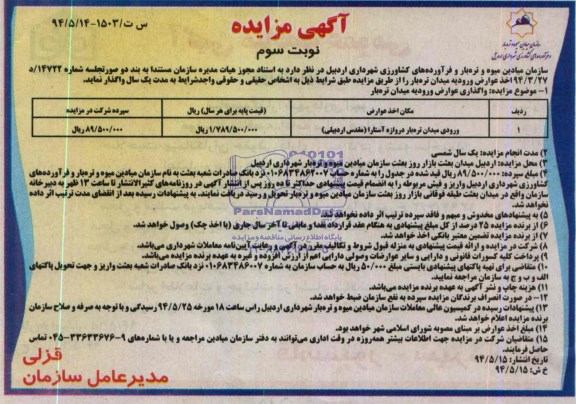 آگهی مزایده
س ت/۱۵۰۳-۹۴/۵/۱۴
نوبت سوم
سازمان میادین میوه و تره‌بار و فرآورده‌های کشاورزی شهرداری اردبیل در نظر دارد به استناد مجوز هیات مدیره سازمان مستندا به بند دو صورتجلسه شماره ۱۴۷۲۲/د
۹۴/۳/۲۷ اخذ عوارض ورودیه میدان تره‌بار را از طریق مزایده طبق شرایط ذیل به اشخاص حقیقی و حقوقی واجدشرایط به مدت یک سال واگذار نماید.
۱- موضوع مزایده: واگذاری عوارض ورودیه میدان تره‌بار
ردیف مکان اخذ عوارض (قیمت پایه برای هر سال) ریال سپرده شرکت در مزایده
۱ ورودی میدان تره‌بار دروازه آستارا (مقدس اردبیلی) ۱/۷۸۹/۵۰۰/۰۰۰ ریال ۸۹/۵۰۰/۰۰۰ ریال
۲) مدت انجام مزایده: یک سال شمسی
۳) محل مزایده: اردبیل میدان بعثت بازار روز بعثت سازمان میادین میوه و تره‌بار شهرداری اردبیل
۴) مبلغ سپرده: ۸۹/۵۰۰/۰۰۰ ریال قید شده در جدول را به شماره حساب ۰۱۰۶۸۳۴۸۶۲۰۰۷ نزد بانک صادرات شعبه بعثت به نام سازمان میادین میوه و تره‌بار و فرآورده‌های
کشاورزی شهرداری اردبیل واریز و فیش مربوطه را به انضمام قیمت پیشنهادی حداکثر تا ده روز پس از انتشار آگهی در روزنامه‌های کثیرالانتشار تا ساعت ۱۳ ظهر به دبیرخانه
سازمان واقع در میدان بعثت طبقه فوقانی بازار روز بعثت سازمان میادین میوه و تره‌بار تحویل و رسید دریافت نمایند. به پیشنهادات رسیده بعد از انقضای مدت ترتیب اثر داده
نخواهد شد.
۵) به پیشنهادهای مخدوش و مبهم و فاقد سپرده ترتیب اثر داده نخواهد شد.
۶) از برنده مزایده ۲۵ درصد از کل مبلغ پیشنهادی به هنگام عقد قرارداد نقدا و مابقی تا آخر سال جاری (با اخذ چک) وصول خواهد شد.
۷) از برنده مزایده تضمین معتبر بانکی اخذ خواهد شد.
۸) شرکت در مزایده و ارائه قیمت پیشنهادی به منزله قبول شروط و تکالیف مقرر در آگهی و رعایت آیین‌نامه معاملات شهرداری می‌باشد.
۹) پرداخت کلیه کسورات قانونی و دارایی و سایر عوارضات وصولی دارایی اعم از ارزش افزوده و غیره به عهده برنده مزایده می‌باشد.
۱۰) متقاضی برای تهیه پاکتهای پیشنهادی بایستی مبلغ ۵۰/۰۰۰ ریال به حساب سازمان به شماره ۰۱۰۶۸۳۴۸۶۰۰۷ نزد بانک صادرات شعبه بعثت واریز و جهت تحویل پاکتهای
الف و ب و ج به سازمان مراجعه نمایید.
۱۱) هزینه چاپ و نشر آگهی به عهده برنده مزایده می‌باشد.
۱۲- در صورت انصراف برندگان مزایده سپرده به نفع سازمان ضبط خواهد شد.
۱۳) پیشنهادات رسیده در کمیسیون عالی معاملات سازمان میادین میوه و تره‌بار شهرداری اردبیل راس ساعت ۱۸ مورخه ۹۴/۵/۲۵ رسیدگی و با توجه به صرفه و صلاح سازمان
برنده مزایده اعلام خواهد شد.
۱۴) مبلغ اخذ عوارض بر مبنای مصوبه شورای اسلامی شهر خواهد بود.
۱۵) متقاضیان شرکت در مزایده جهت اطلاعات بیشتر همه‌روزه در وقت اداری می‌توانند به دفتر سازمان میادین مراجعه و یا با شماره‌های ۹-۳۳۶۳۳۶۷۶-۰۴۵ تماس
حاصل فرمایند.
تاریخ انتشار: ۹۴/۵/۱۵
خ ش: ۹۴/۵/۱۵
قزلی
مدیرعامل سازمان
ParsNamadData
پایگاه اطلاع رسانی مناقصه و مزایده